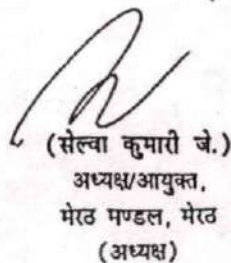 (सेल्वा कुमारी जे.)
अध्यक्ष/आयुक्त,
मेरठ मण्डल, मेरठ
(अध्यक्ष)